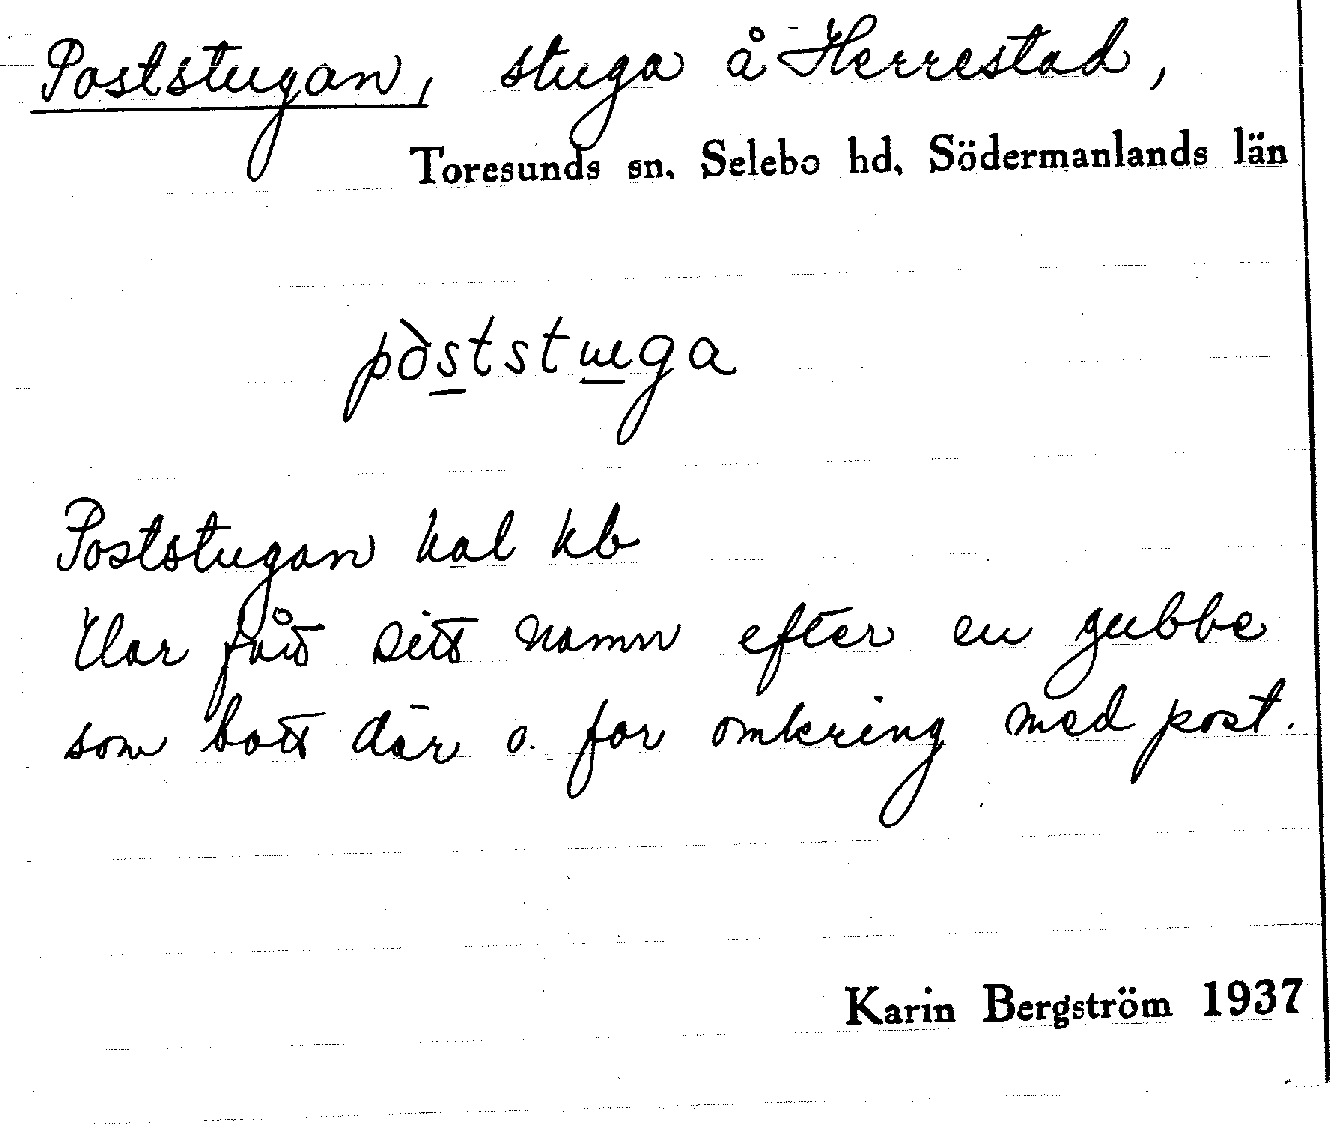 Poststugan, stuga å Herrestad,
Toresunds sn. Selebo hd. Södermanlands län
pòststɯga
Poststugan hal kb
Har fått sitt namn efter en gubbe
som bott där o. for omkring med post.
Karin Bergström 1937